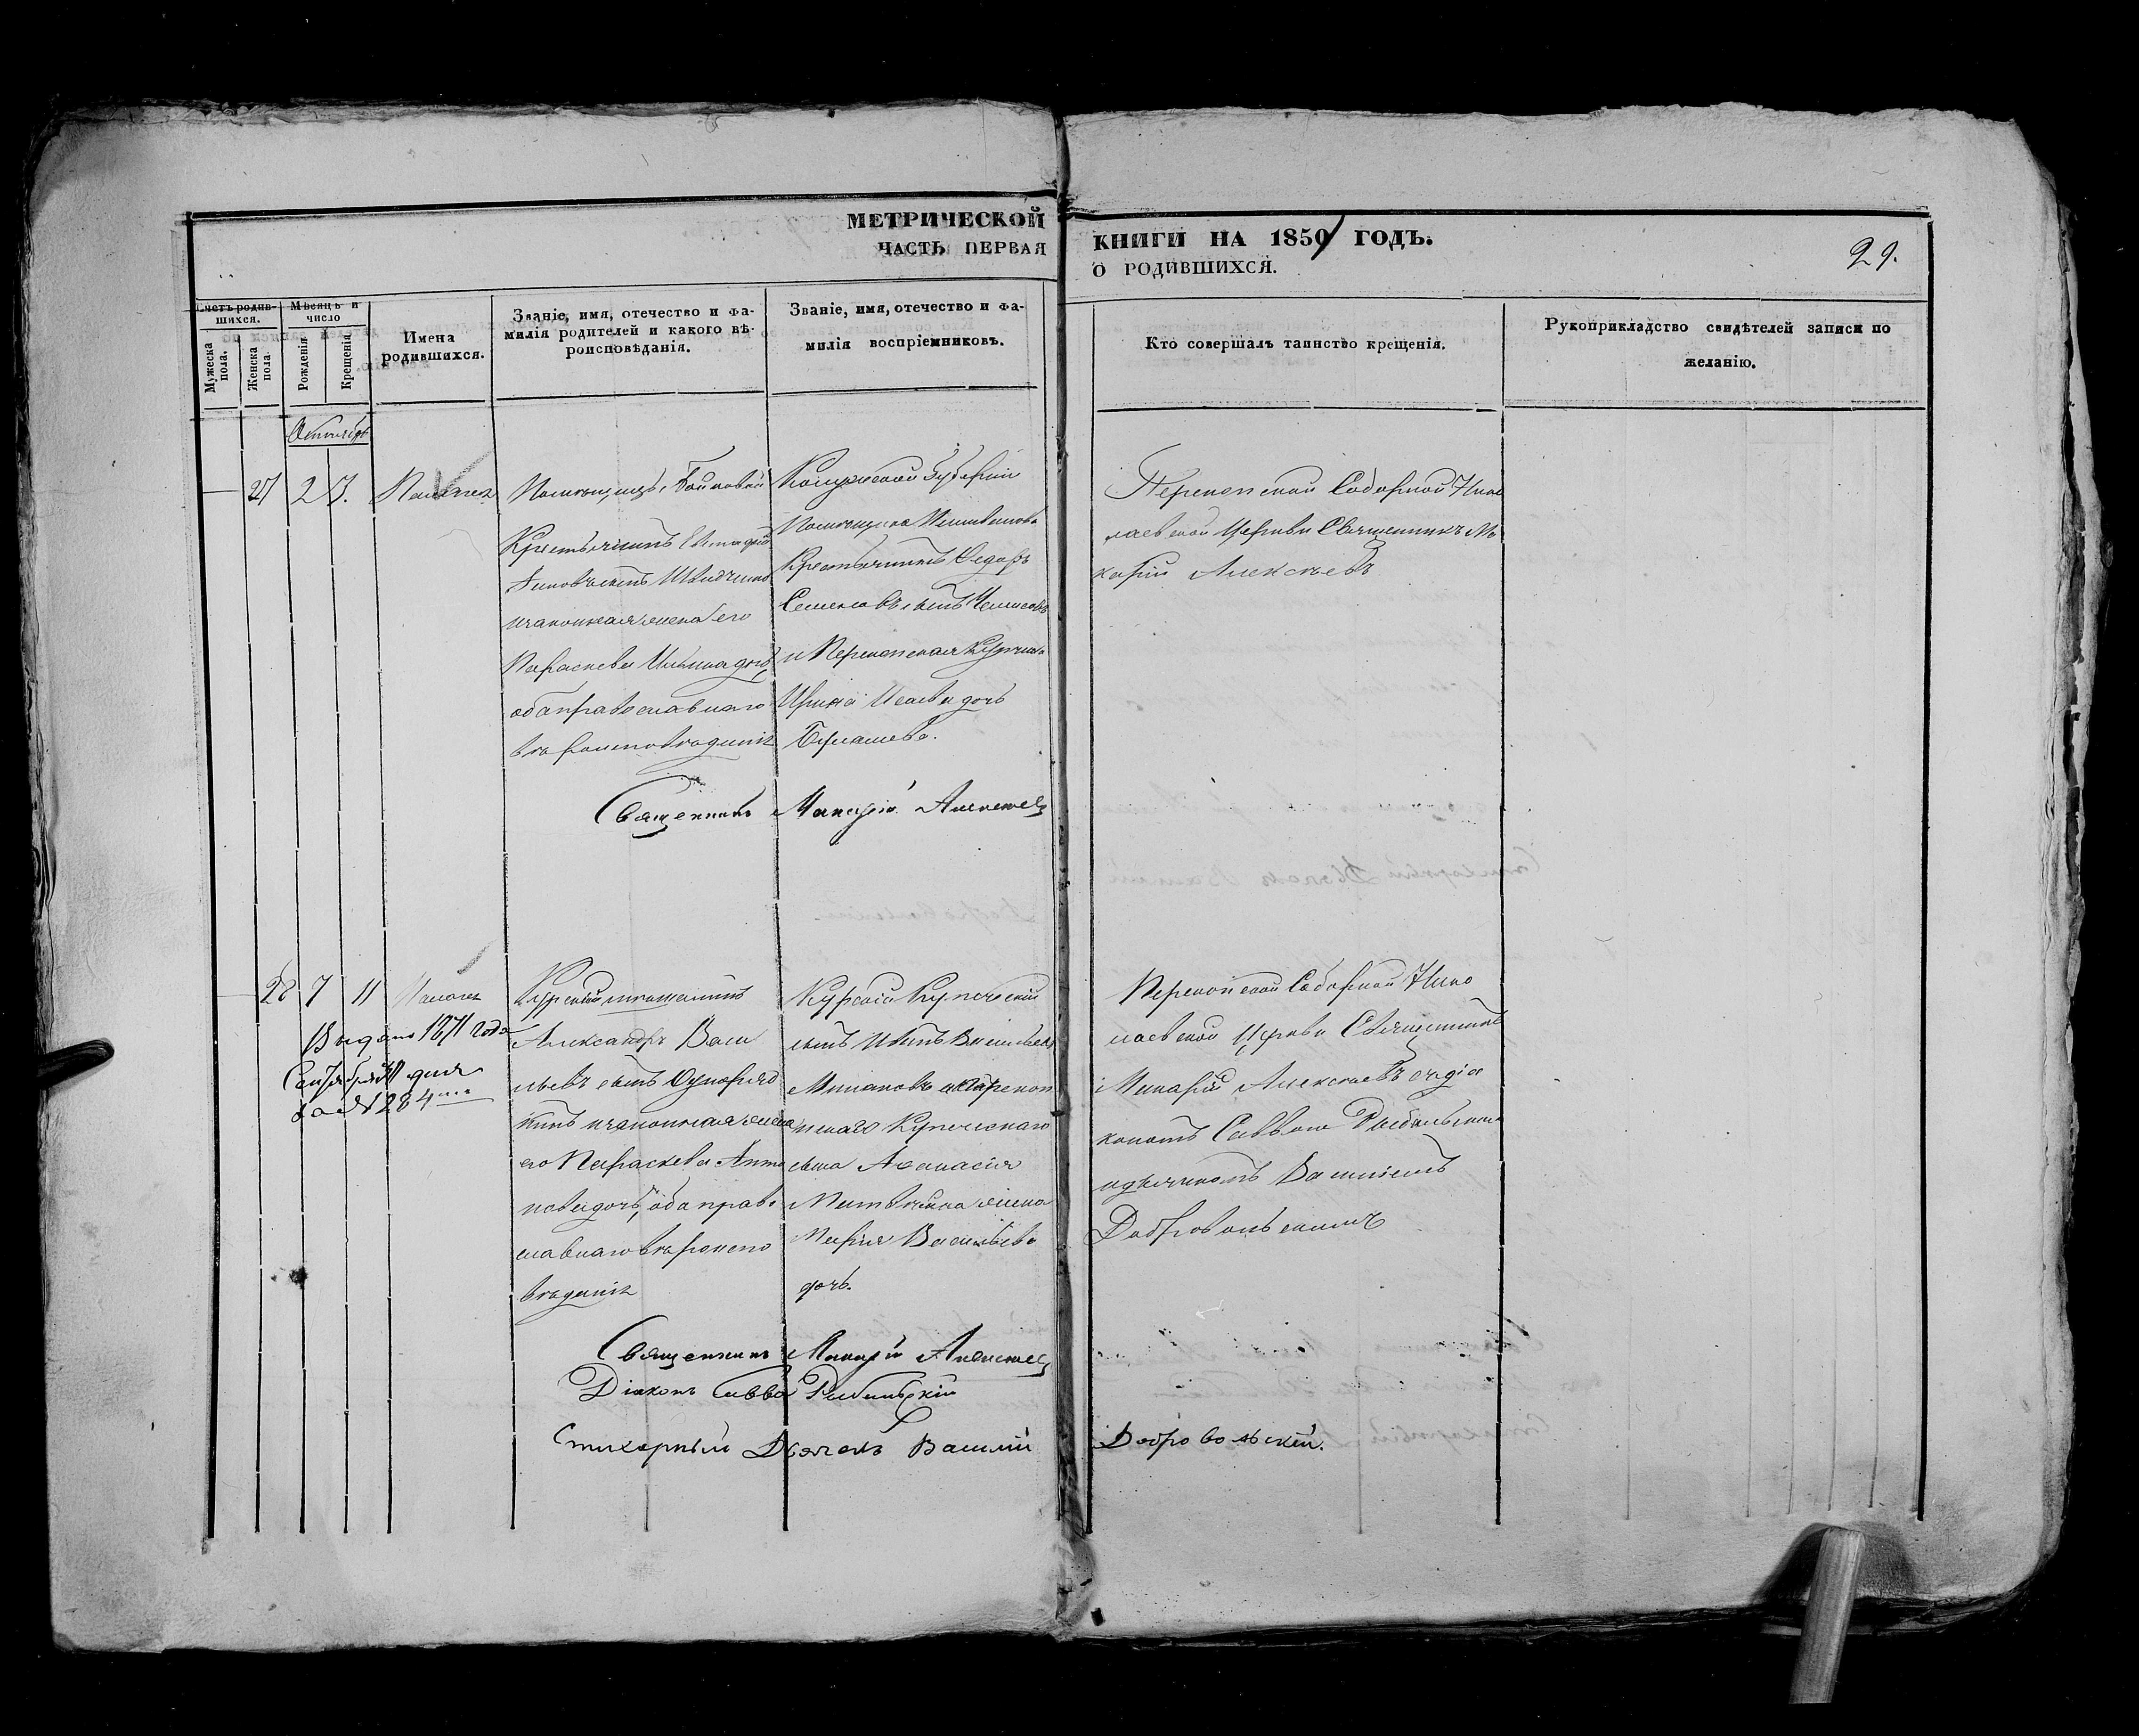 МЕТРИЧЕСКОЙ
ЧАСТЬ ПЕРВАЯ
КНИГИ НА 1850 ГОДЪ.
О РОДИВШИХСЯ.
29.
Счетъ родив-
шихся.
Мужеска
пола.
Женска
пола.
Мѣсяцъ и
число
Рожденія
Крещенія
Имена
родившихся.
Званіе, имя, отечество и фа-
милія родителей и какого вѣ-
роисповѣданія.
Званіе, имя, отечество и фа-
милія воспріемниковъ.
Кто совершалъ таинство крещенія.
Рукоприкладство свидѣтелей записи по
желанію.
Октября
27
2
3.
Пелагея
Помѣщицы
Крестьянинъ
и законная жена его
Параскева дочь,
оба православнаго
вѣроисповѣданія
Калужской Губерніи
Помѣщика
Крестьянинъ Федоръ
Семеновъ сынъ
и Перекопская Купчиха
Ирина Исаева дочь
Перекопской Соборной Нико
лаевской Церкви Священникъ Ма
карій Алексѣевъ
Священникъ Макарій Алексѣевъ
28
7
11
Пелагея
Выдано 1871 года
Сентября дня
за № 284
Курскій мѣщанинъ
Александръ Васи
льевъ сынъ
и законная жена
его Параскева Анто
нова дочь, оба право
славнаго вѣроиспо
вѣданія
Курскій Купеческій
сынъ Иванъ Васильевъ
Минаковъ и Перекоп
скаго Купеческаго
сына Афанасія
жена
Марія Васильева
дочь.
Перекопской Соборной Нико
лаевской Церкви Священникъ
Макарій Алексѣевъ съ діа
кономъ Саввою Рыбальскимъ
и дьячкомъ Василіемъ
Добровольскимъ
Священникъ Макарій Алексѣевъ
Діаконъ Савва Рыбальскій
Стихарный Дьячекъ Василій Добровольскій.